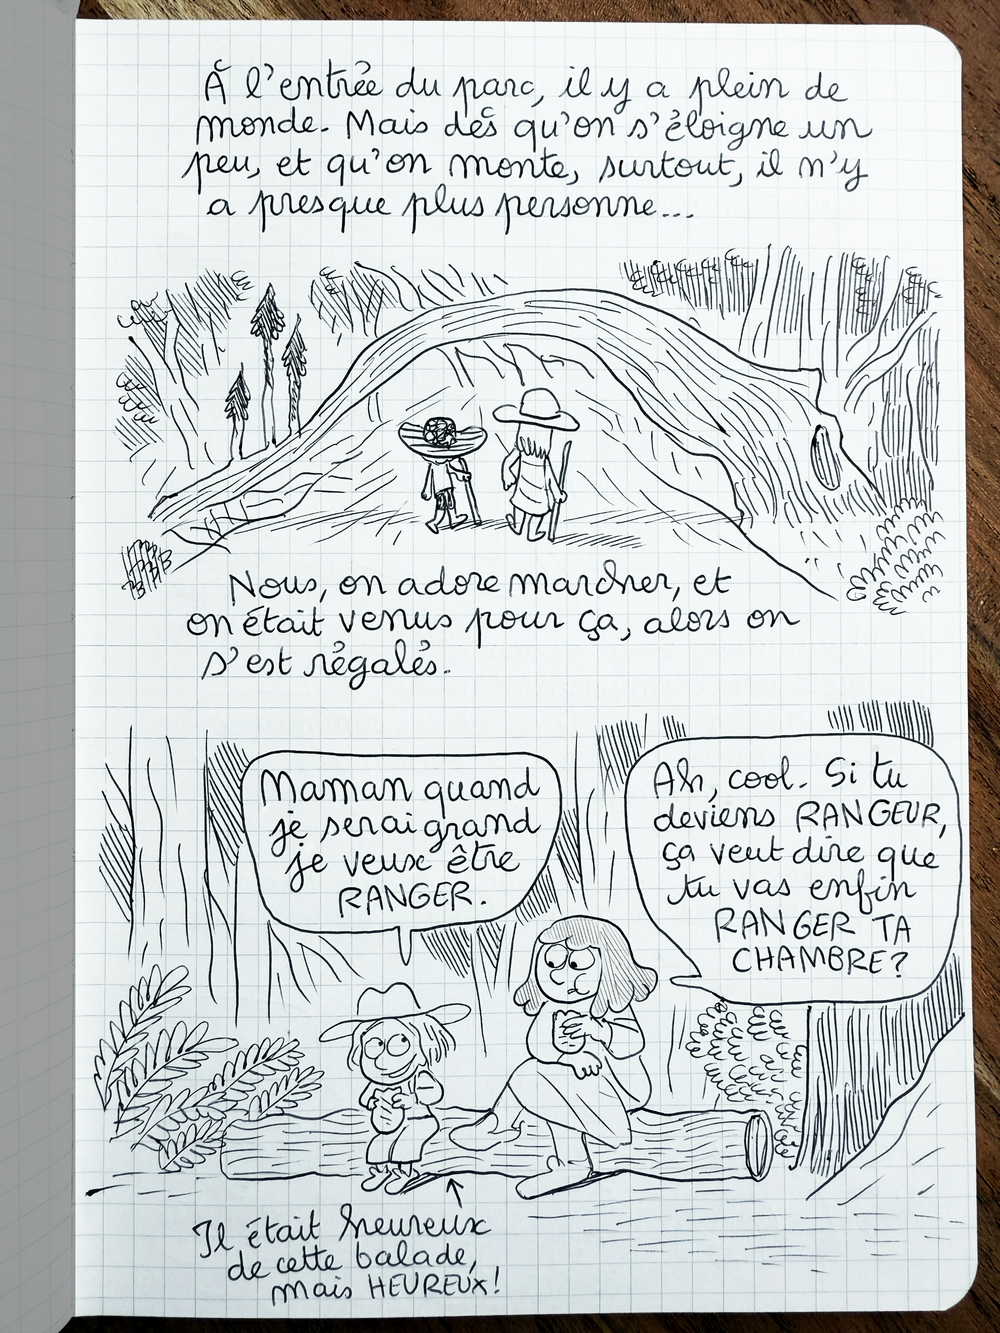 À l'entrée du parc, il y a plein de
monde. Mais dès qu'on s'éloigne un
peu, et qu'on monte, surtout, il n'y
a presque plus personne...
Nous, on adore marcher, et
on était venus pour ça, alors on
s'est régalés.
Maman quand
je serai grand
je veux être
RANGER.
Ah, cool. Si tu
deviens RANGEUR,
ça veut dire que
tu vas enfin
RANGER TA
CHAMBRE?
Il était heureux
de cette balade,
mais HEUREUX!